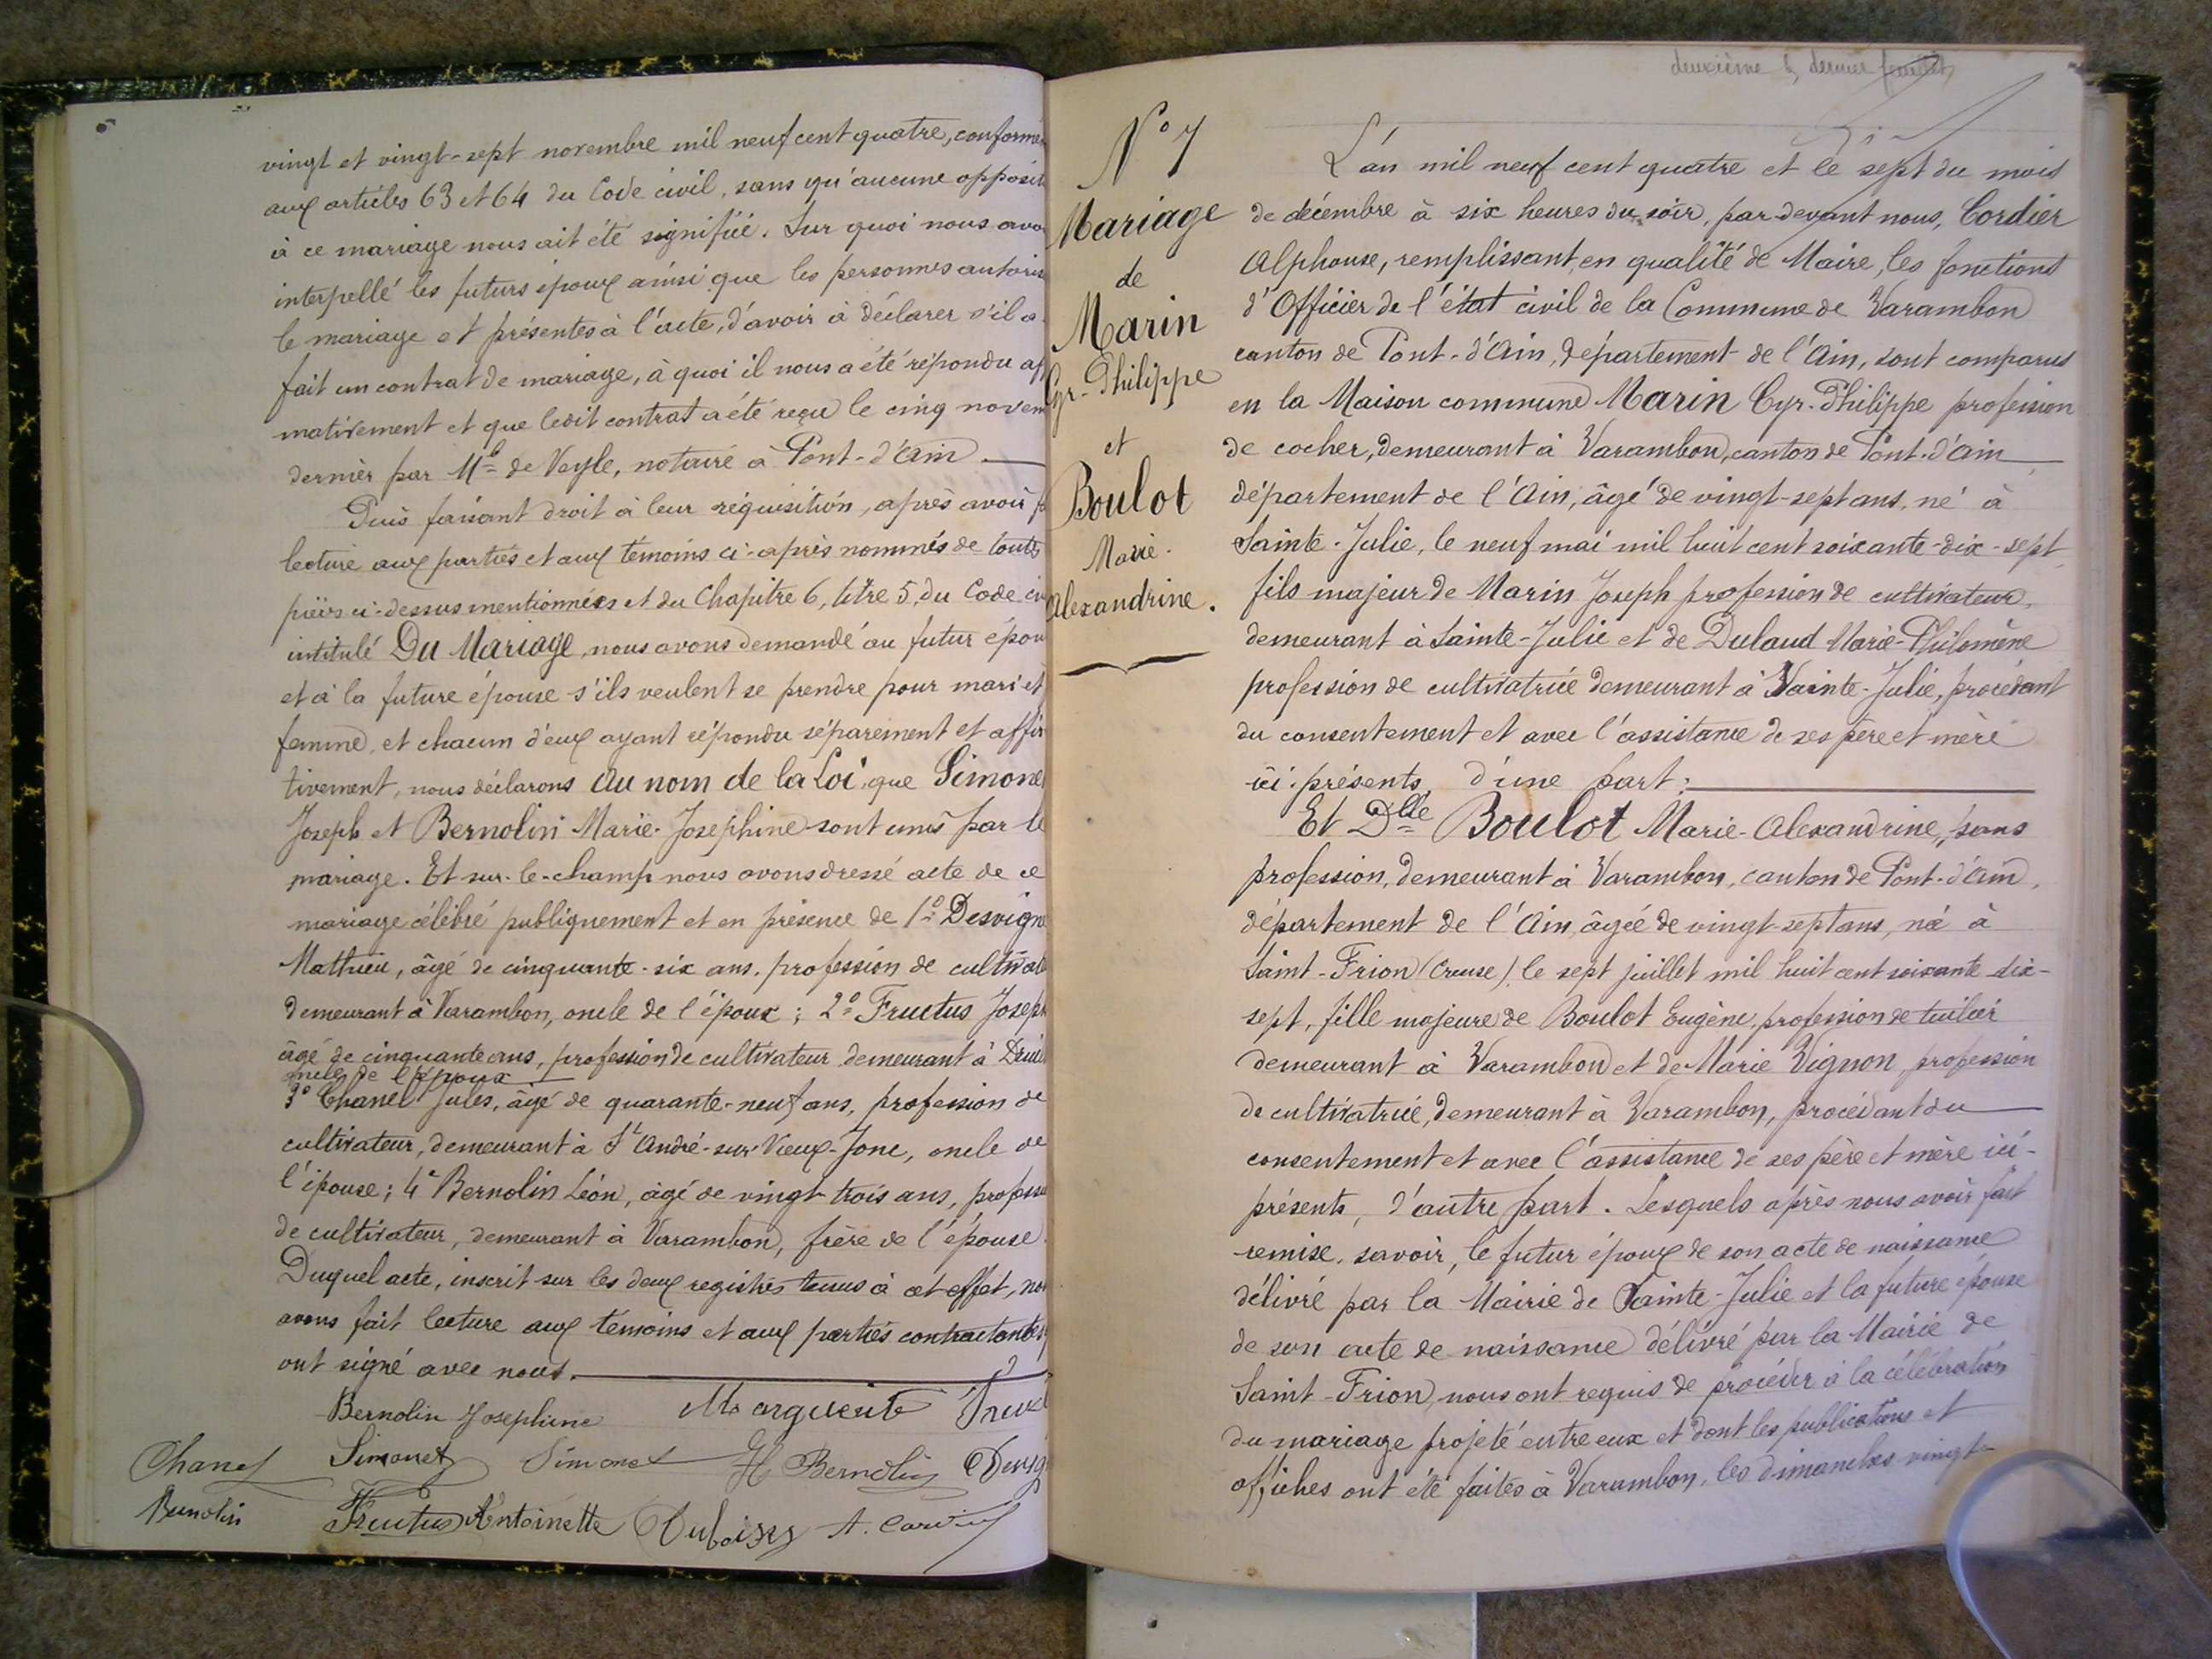 vingt et vingt-sept novembre mil neuf cent quatre, conformé
aux articles 63 et 64 du Code civil, sans qu'aucune opposit
à ce mariage nous ait été signifiée. Sur quoi nous avo
interpellé les futurs époux ainsi que les personnes autoris
le mariage et présentes à l'acte, d'avoir à déclarer s'il a
fait un contrat de mariage, à quoi il nous a été répondu aff
mativement et que ledit contrat a été reçu le cinq novem
dernier par Me de Veyle, notaire à Pont-d'Ain
Puis faisant droit à leur réquisition, après avoir
lecture aux parties et aux témoins ci-après nommés de toutes
pièces ci-dessus mentionnées et du Chapitre 6, titre 5, du Code civ
intitulé Du Mariage, nous avons demandé au futur épou
et à la future épouse s'ils veulent se prendre pour mari et
femme, et chacun d'eux ayant répondu séparement et affir
tivement, nous déclarons au nom de la Loi, que Simonet
Joseph et Bernolin Marie-Josephine sont unis par le
mariage. Et sur-le-champ nous avons dressé acte de ce
mariage célébré publiquement et en présence de 1° Desvigne
Mathieu, âgé de cinquante-six ans, profession de cultivate
demeurant à Varambon, oncle de l'époux ; 2° Fructus Joseph
âgé de cinquante ans, profession de cultivateur demeurant à Druil
oncle de l'époux
3° Chanel Jules, âgé de quarante-neuf ans, profession de
cultivateur, demeurant à St André-sur-Vieux-Jonc, oncle de
l'épouse ; 4° Bernolin Léon, âgé de vingt-trois ans, profess
de cultivateur, demeurant à Varambon, frère de l'épouse.
Duquel acte, inscrit sur les deux registres tenus à cet effet, nou
avons fait lecture aux témoins et aux parties contractantes
ont signé avec nous.
Bernolin Josephine Marguerite
Chanel Simonet Simonet Bernolin
Bernolin Fructus Antoinette Dubois
deuxième & dernier feuillet
N° 7
Mariage
de
Marin
Cyr-Philippe
et
Boulot
Marie-
Alexandrine.
L'an mil neuf cent quatre et le sept du mois
de décembre à six heures du soir, par-devant nous, Cordier
Alphonse, remplissant en qualité de Maire, les fonctions
d'Officier de l'état civil de la Commune de Varambon
canton de Pont-d'Ain, département de l'Ain, sont comparus
en la Maison commune Marin Cyr-Philippe profession
de cocher, demeurant à Varambon, canton de Pont-d'Ain
département de l'Ain, âgé de vingt-sept ans, né à
Sainte-Julie, le neuf mai mil huit cent soixante-dix-sept,
fils majeur de Marin Joseph profession de cultivateur,
demeurant à Sainte-Julie et de Dulaud Marie-Philomène
profession de cultivatrice demeurant à Sainte-Julie, procédant
du consentement et avec l'assistance de ses père et mère
ici-présents, d'une part ;
Et Dlle Boulot Marie-Alexandrine, sans
profession, demeurant à Varambon, canton de Pont-d'Ain,
département de l'Ain, âgée de vingt-sept ans, née à
Saint-Frion (Creuse), le sept juillet mil huit cent soixante dix-
sept, fille majeure de Boulot Eugène, profession de tuilier
demeurant à Varambon et de Marie Vignon, profession
de cultivatrice, demeurant à Varambon, procédant du
consentement et avec l'assistance de ses père et mère ici-
présents, d'autre part. Lesquels après nous avoir fait
remise, savoir, le futur époux de son acte de naissance
délivré par la Mairie de Sainte-Julie et la future épouse
de son acte de naissance délivré par la Mairie de
Saint-Frion, nous ont requis de procéder à la célébration
du mariage projeté entre eux et dont les publications et
affiches ont été faites à Varambon, les dimanches vingt-